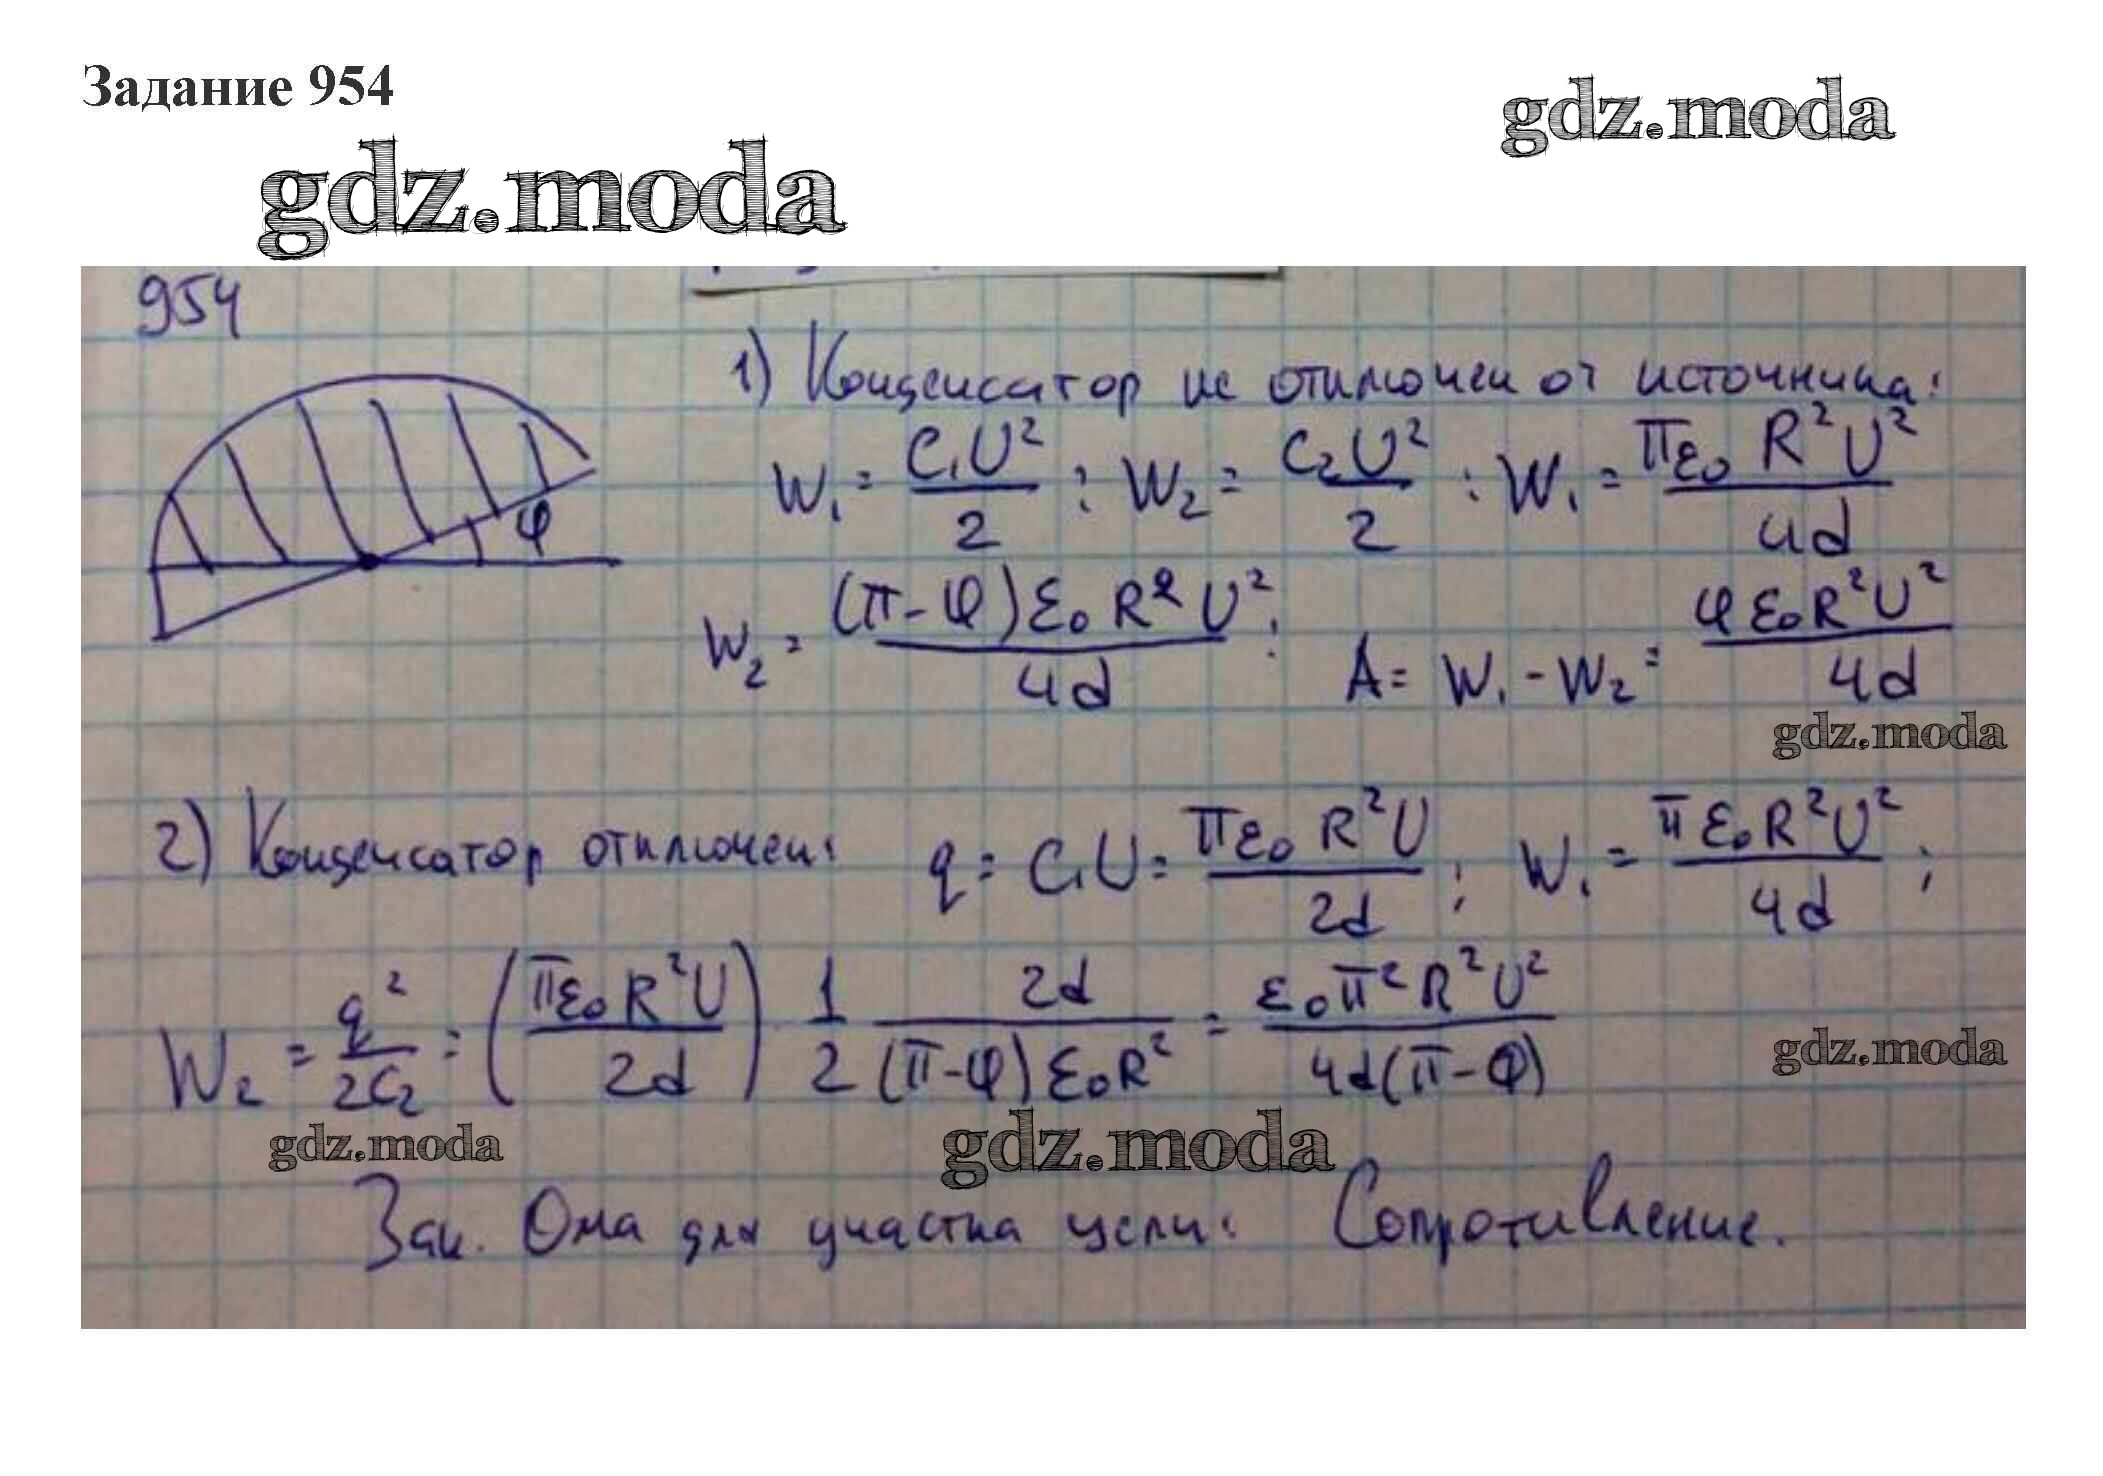 Задание 954
gdz.moda
gdz.moda
954
φ
1) Конденсатор не отключен от источника:
W₁ = C₁U²/2 ; W₂ = C₂U²/2 ; W₁ = πε₀R²U²/4d
W₂ = (π-φ)ε₀R²U²/4d ; A = W₁ - W₂ = φε₀R²U²/4d
gdz.moda
2) Конденсатор отключен: q = C₁U = πε₀R²U/2d ; W₁ = πε₀R²U²/4d ;
W₂ = q²/2C₂ = (πε₀R²U/2d) 1/2 2d/(π-φ)ε₀R² = ε₀π²R²U²/4d(π-φ)
gdz.moda
gdz.moda
gdz.moda
Зак. Ома для участка цепи: Сопротивление.